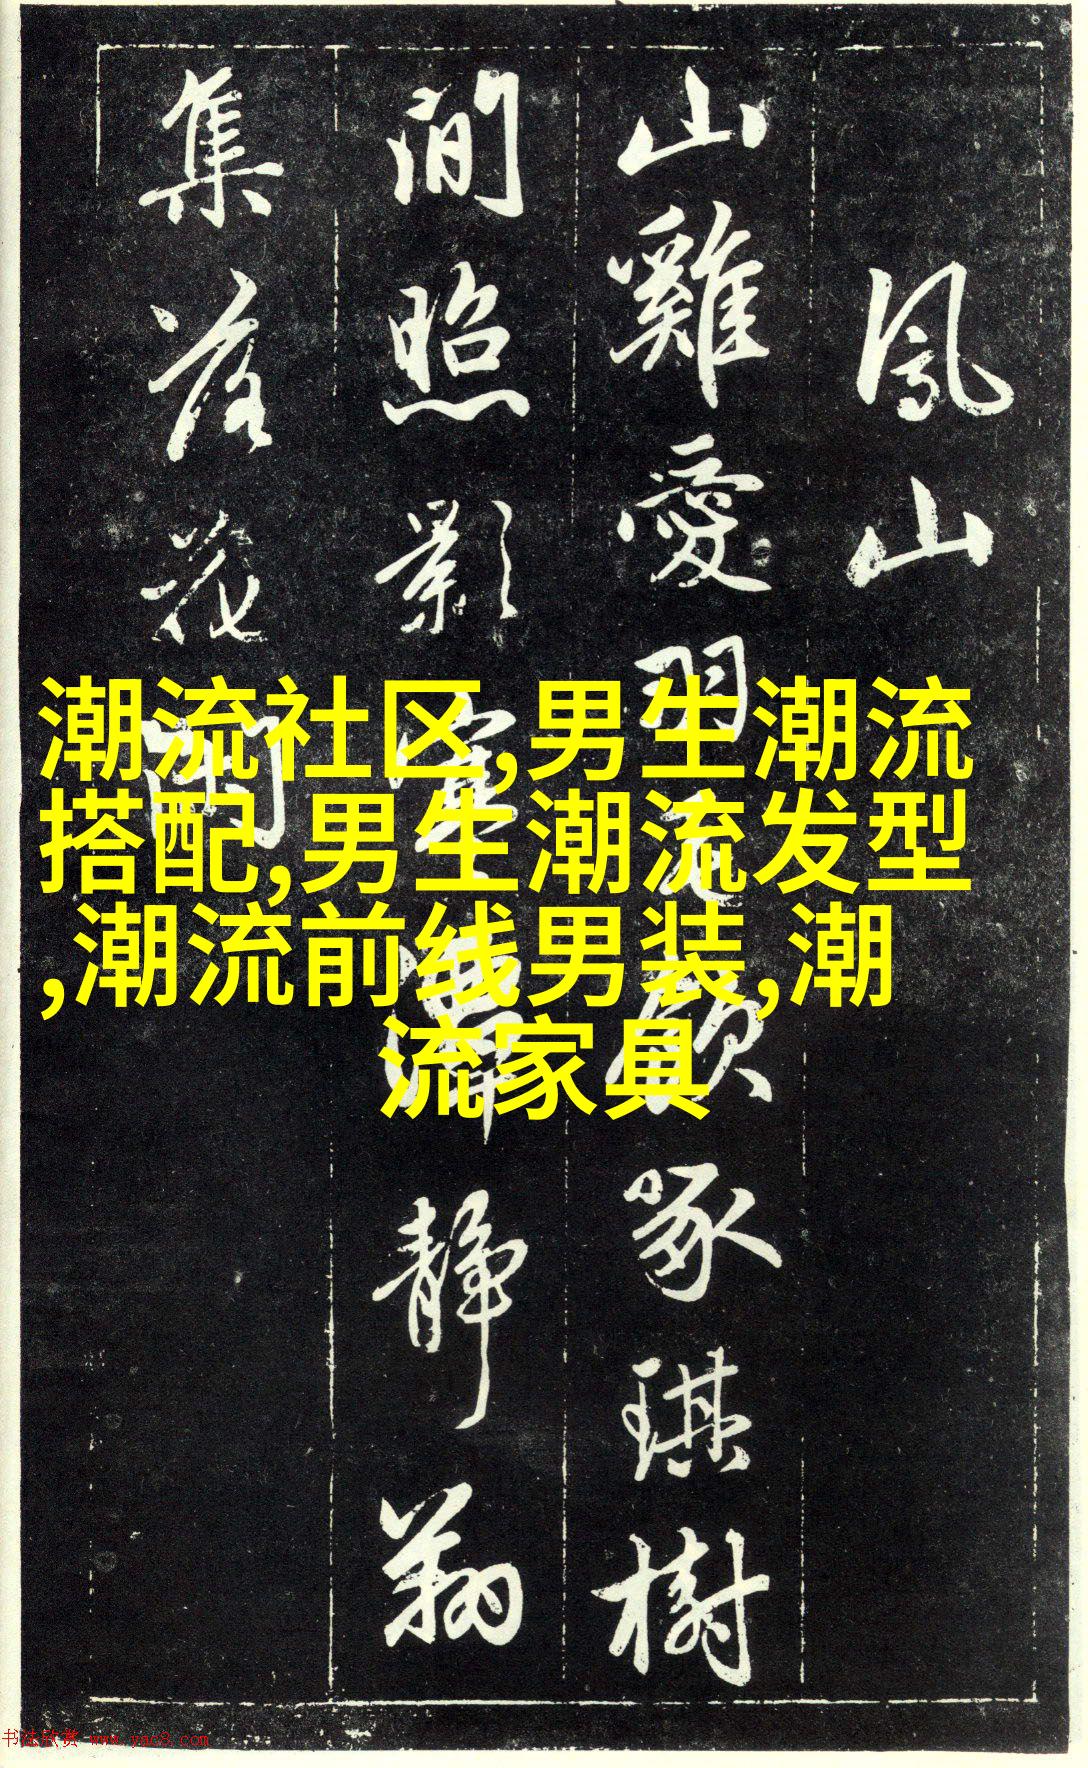 鳳山
山雞愛羽毛啄琪樹
間照影寒靜
集落花間
潮流社区,男生潮流
搭配,男生潮流发型
,潮流前线男装,潮
流家具
书法欣赏 www.yac8.com